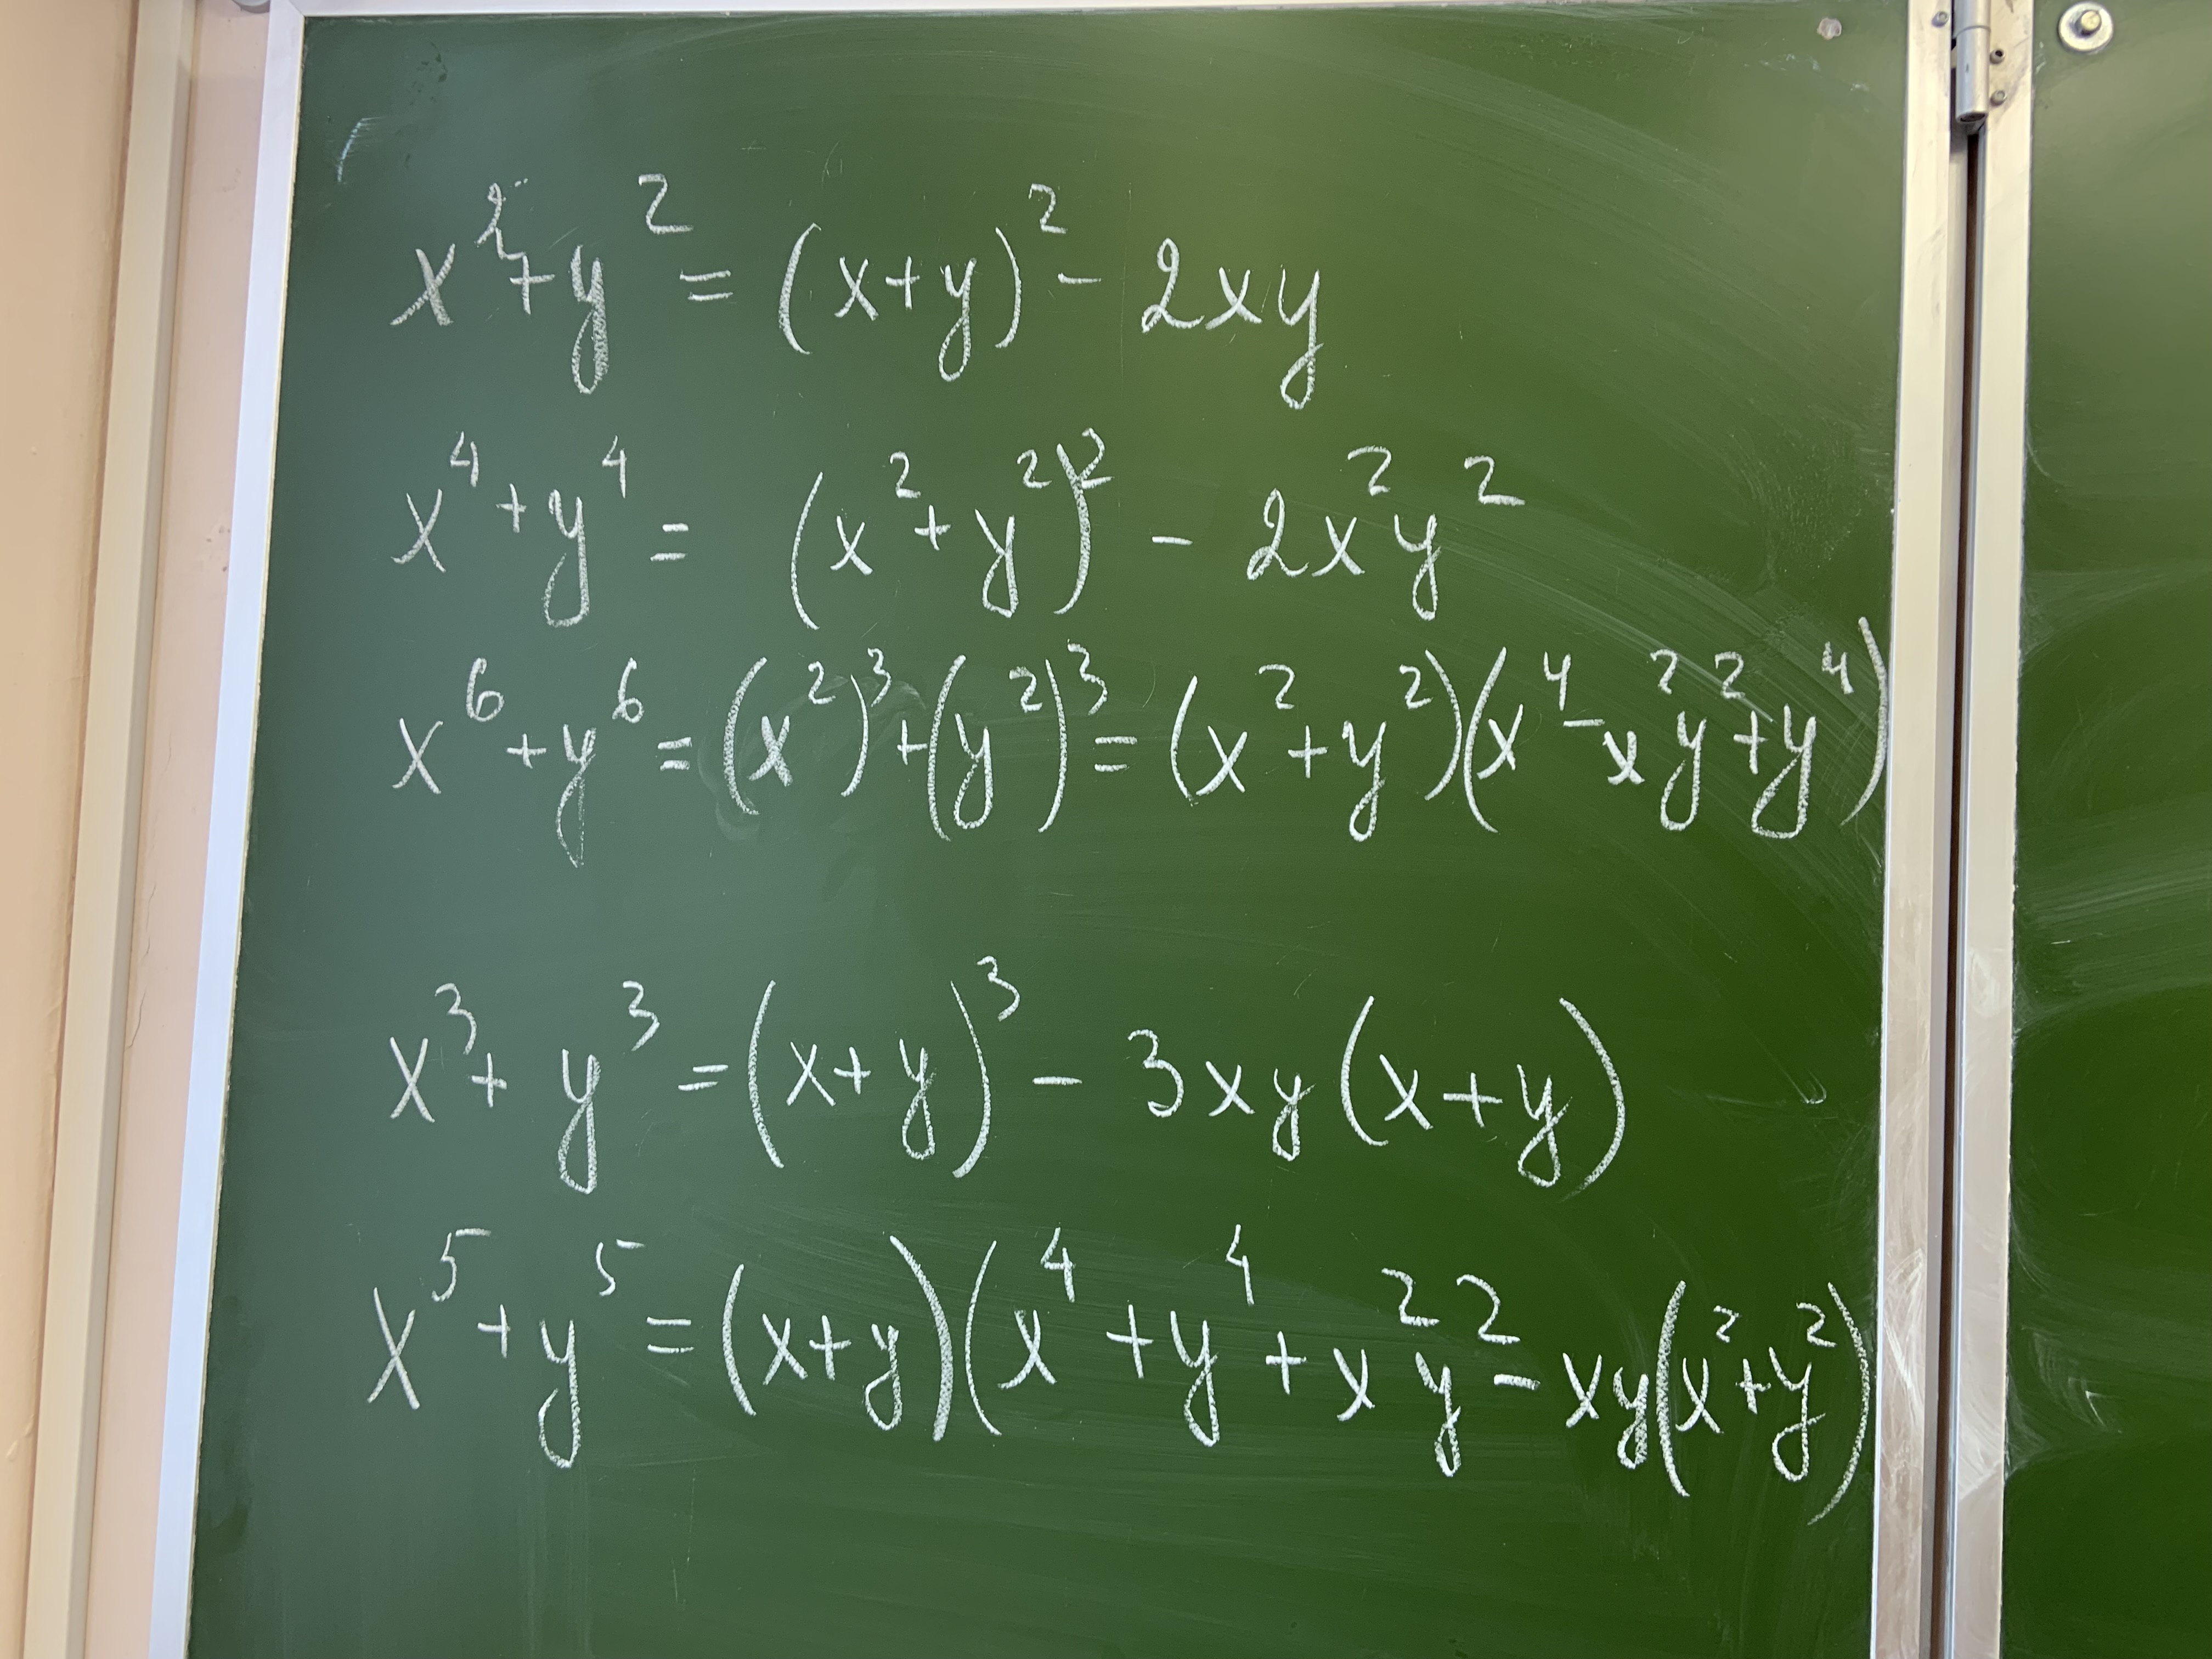 x² + y² = (x+y)² - 2xy
x⁴ + y⁴ = (x² + y²)² - 2x²y²
x⁶ + y⁶ = (x²)³ + (y²)³ = (x² + y²)(x⁴ - x²y² + y⁴)
x³ + y³ = (x+y)³ - 3xy(x+y)
x⁵ + y⁵ = (x+y)(x⁴ + y⁴ + x²y² - xy(x²+y²)